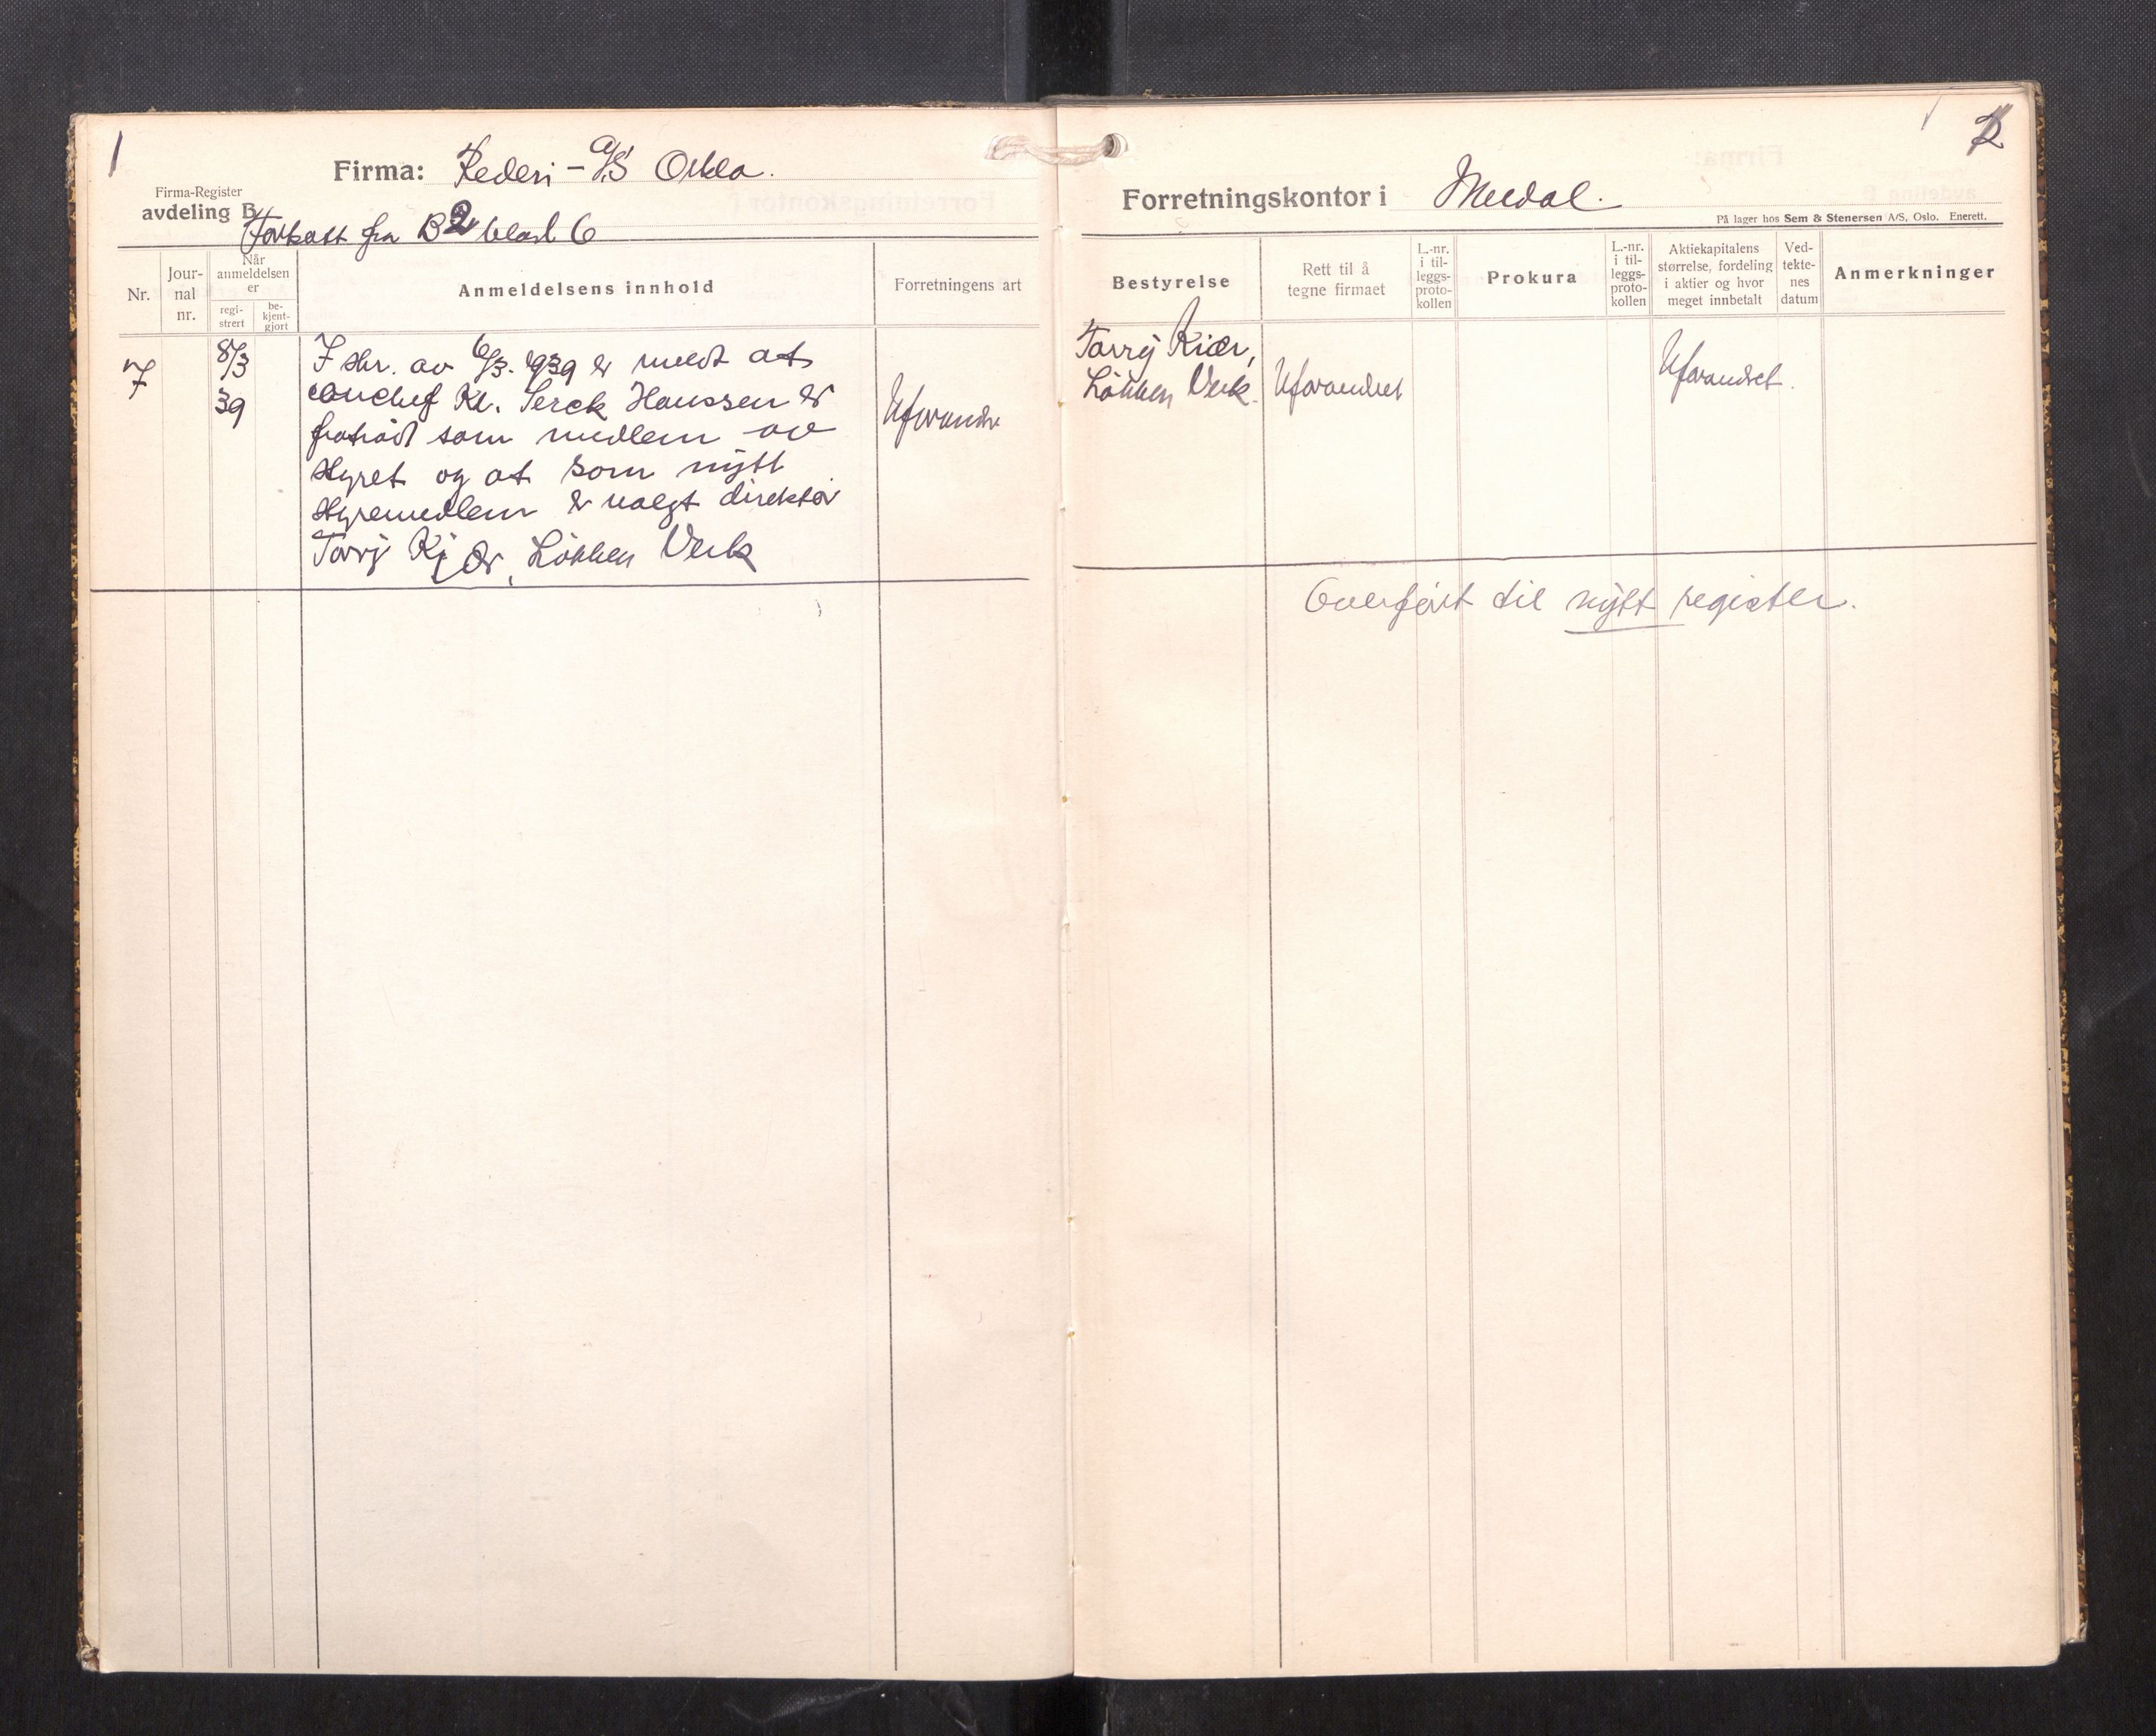 1
Firma: Rederi - A/S Orkla.
Firma-Register
avdeling B
Fortsatt fra B 2 blad 6
Nr.
Jour-
nal
nr.
Når
anmeldelsen
er
regi-
strert
be-
kjent-
gjort
Anmeldelsens innhold
Forretningens art
7
8/3
39
I skr. av 6/3. 1939 er meldt at
Kl. Serck Hanssen er
fratrådt som medlem av
styret og at som nytt
styremedlem er valgt direktør
Torry Kjær, Løkken Verk
Uforandre
2
Forretningskontor i Meldal.
På lager hos Sem & Stenersen A/S, Oslo. Enerett.
Bestyrelse
Rett til å
tegne firmaet
L.-nr.
i til-
leggs-
proto-
kollen
Prokura
L.-nr.
i til-
leggs-
proto-
kollen
Aktiekapitalens
størrelse, fordeling
i aktier og hvor
meget innbetalt
Ved-
tekte-
nes
datum
Anmerkninger
Torry Kiær,
Løkken Verk.
Uforandret
Uforandret.
Overført til nytt register.